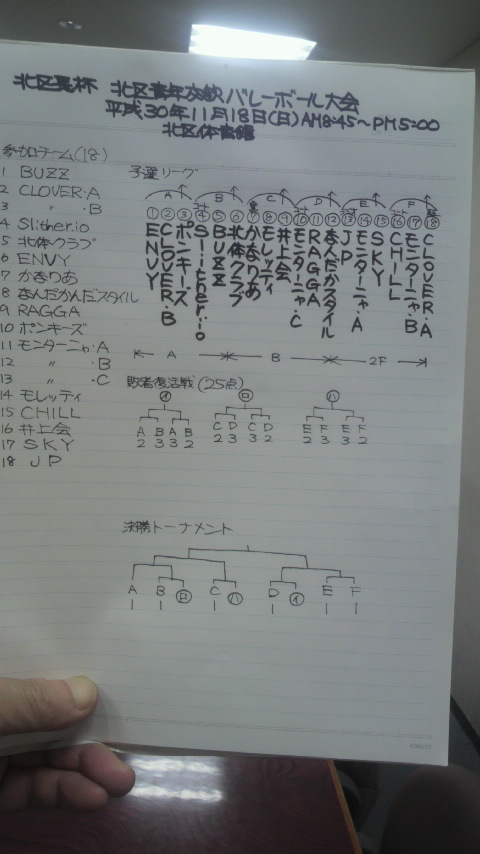 北区長杯 北区青年交歓バレーボール大会
平成30年11月18日(日)AM8:45~PM5:00
北区体育館
参加チーム(18)
1 BUZZ
2 CLOVER·A
3 〃 ·B
4 Slither.io
5 北体クラブ
6 ENVY
7 かまりあ
8 なんだかんだスタイル
9 RAGGA
10 ポンキーズ
11 モンターニャ·A
12 〃 ·B
13 〃 ·C
14 モレッティ
15 CHILL
16 井上会
17 SKY
18 JP
予選リーグ
A B C D E F
① ② ③ ④ ⑤ ⑥ ⑦ ⑧ ⑨ ⑩ ⑪ ⑫ ⑬ ⑭ ⑮ ⑯ ⑰ ⑱
ENVY
CLOVER·B
ポンキーズ
Slither.io
BUZZ
北体クラブ
かまりあ
モレッティ
井上会
モンターニャ·C
RAGGA
なんだかんだスタイル
JP
モンターニャ·A
SKY
CHILL
モンターニャ·B
CLOVER·A
A B 2F
敗者復活戦(25点)
㋑ ㋺ ㋩
A B A B C D C D E F E F
2 3 3 2 2 3 3 2 2 3 3 2
決勝トーナメント
A B ㋺ C ㋩ D ㋑ E F
1 1 1 1 1 1
KOKUYO